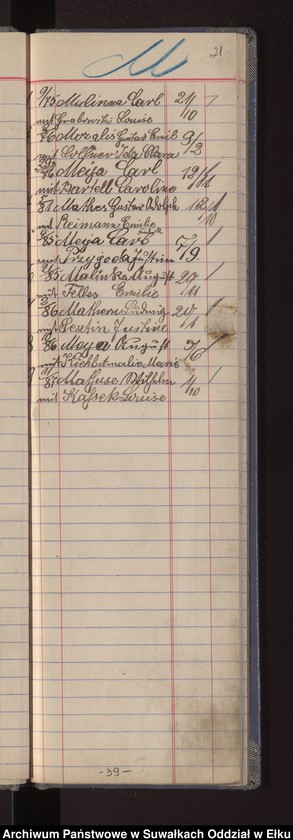 M
21
9/75 Malinna Carl 21/10
mit Grabowski Louise
76 Mozalis Gustav Emil 9/3
mit Ida Clara
76 Meija Carl 12/11
mit Bartell Caroline
81 Mathes Gustav Adolph 10
mit Reimann Emilie
85 Meya Carl 7/9
mit Przygoda Justine
85 Malinka August 29/11
mit Felles Emilie
86 Mathern Ludwig 20/11
mit Sesetin Justine
86 Mayer August 3/6
mit Marie
87 Mathuse Wilhelm 4/10
mit Kassek Louise
-39-
Archiwum Państwowe w Suwałkach Oddział w Ełku